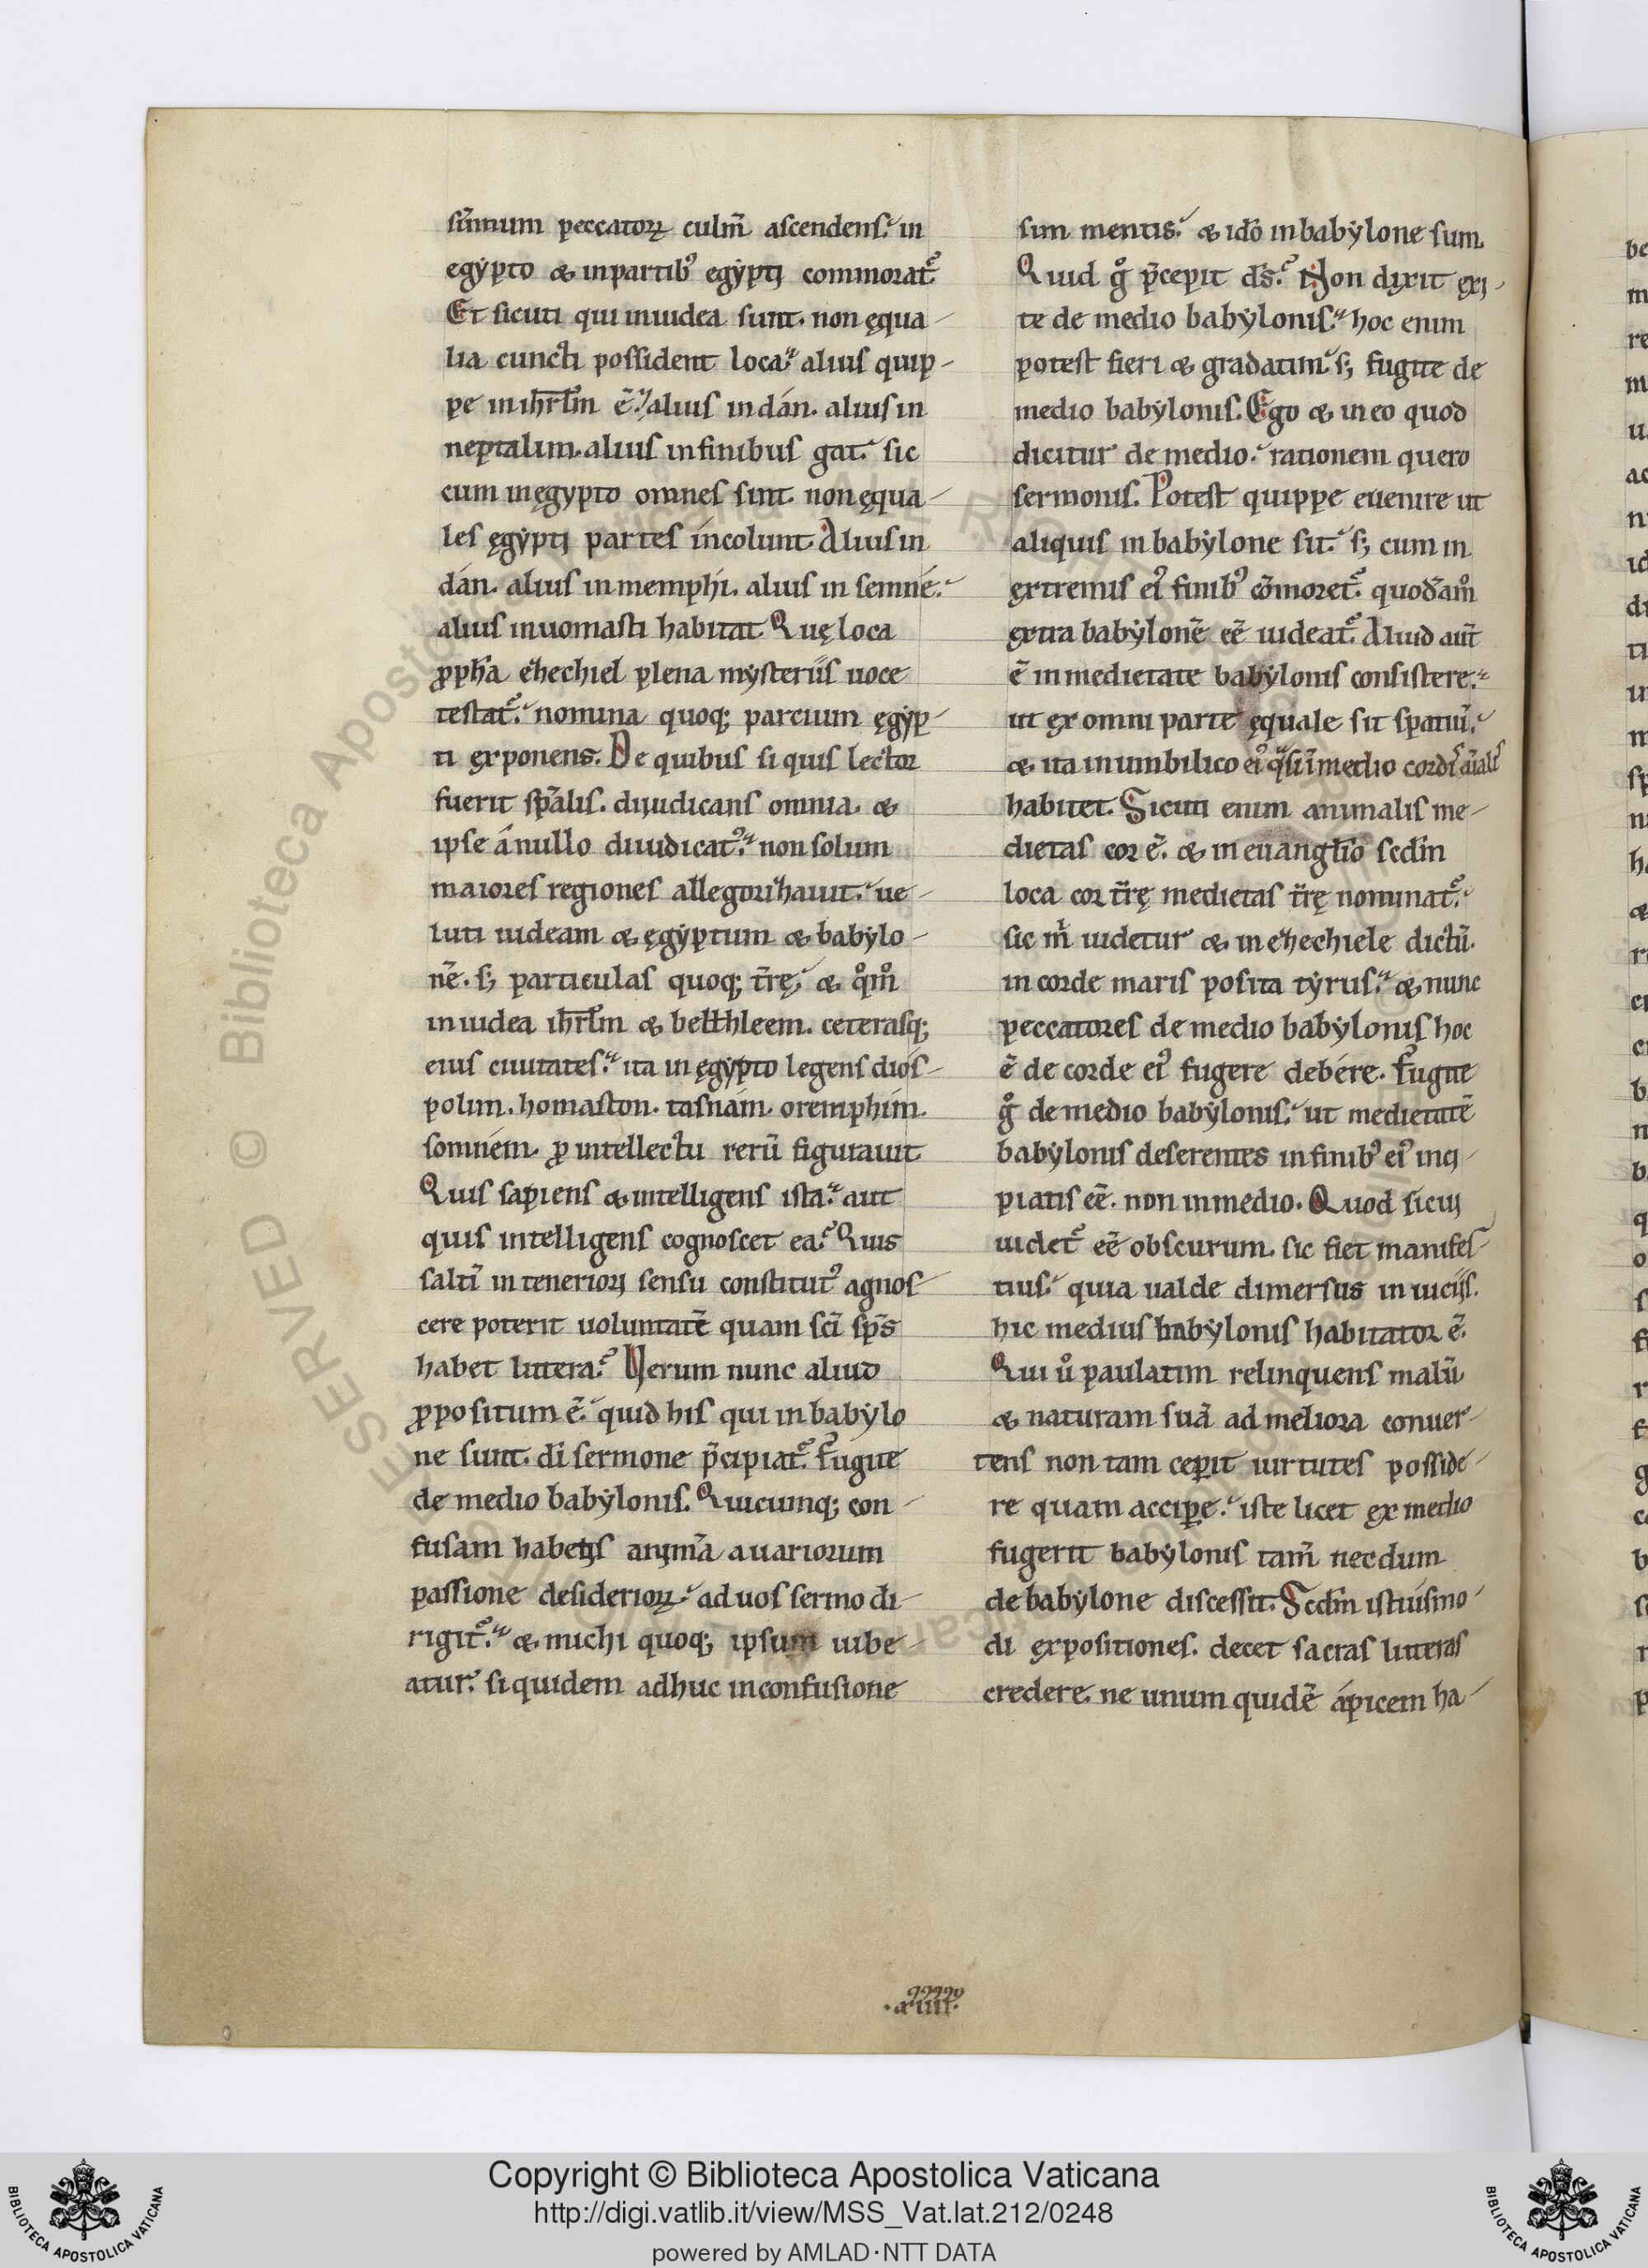 sūmum peccatoꝝ culm̄ ascendens. in
egẏpto & in partib᷒ egẏptj commorat᷑.
Et sicuti qui in iudea sunt. non ęqua-
lia cuncti possident loca. alius quip-
pe in ihrl̄m ē. alius in dán. alius in
neptalim. alius in finibus gat. sic
cum in ęgypto omnes sint. non ęqua-
les ęgẏptj partes incolunt. Alius in
dán. alius in memphi. alius in semné.
alius in uomasti habitat. Quę loca
ꝓph̄a ezechiel plena mẏsteriis uoce
testat᷑. nomina quoq; partium ęgẏp-
ti exponens. De quibus si quis lector
fuerit sp̄alis. dijudicans omnia. &
ipse á nullo diiudicat᷑. non solum
maiores regiones allegorizauit. ue-
luti iudeam & ęgẏptum & babẏlo-
nē. s; particulas quoq; t̄rę. & q̊m̊
in iudea ihrl̄m & bethleem. ceterasq;
eius ciuitates. ita in ęgẏpto legens diós-
polim. homaston. tasnaím. oremphím.
somném. ꝓ intellectu rerū figurauit.
Quis sapiens & intelligens ista. aut
quis intelligens cognoscet ea? Quis
saltī in teneriorj sensu constitut᷒ agnos-
cere poterit uoluntatē quam sc̄i sp̄s
habet littera? Verum nunc aliud
ꝓpositum ē. quid his qui in babẏlo
ne sunt. dī sermone p̄cipiat᷑. Fugite
de medio babẏlonis. Quicumq; con-
fusam habetis anjmā auariorum
passione desiderioꝝ. ad uos sermo di-
rigit᷑. & michi quoq; ipsum iube-
atur. siquidem adhuc in confusione
sim mentis. & idō in babẏlone sum.
Quid g̊ p̄cepit d̄s? Non dixit exj-
te de medio babẏlonis. hoc enim
potest fieri & gradatim. s; fugite de
medio babẏlonis. Ego & in eo quod
dicitur de medio. rationem quero
sermonis. Potest quippe euenire ut
aliquis in babẏlone sit. s; cum in
extremis ei᷒ finib᷒ cōmoret᷑. quodām̊
extra babẏlonē eē uideat᷑. Aliud aut̄
ē in medietate babẏlonis consistere.
ut ex omni parte ęquale sit spatiū.
& ita in umbilico ei᷒ q̄si ī medio cordis aīalis
habitet. Sicuti enim animalis me-
dietas cor ē. & in euangl̄io scd̄m
loca cor t̄rę medietas t̄rę nominat᷑.
sic m̊ uidetur & in ezechiele dictū.
in corde maris posita tẏrus. & nunc
peccatores de medio babẏlonis hoc
ē de corde ei᷒ fugere debére. Fugite
g̊ de medio babẏlonis. ut medietatē
babẏlonis deserentes in finib᷒ ei᷒ incj-
piatis eē. non in medio. Quod sicuj
uidet᷑ eē obscurum. sic fiet manifes-
tius. quia ualde dimersus in uicijs.
hic medius babẏlonis habitator ē.
Qui ů paulatim relinquens malū
& naturam suā ad meliora conuer-
tens non tam cepit uirtutes posside-
re quam accipꝑe. iste licet ex medio
fugerit babẏlonis tam̄ necdum
de babẏlone discessit. Scd̄m istiusmo-
di expositiones. decet sacras litteras
credere. ne unum quidē ápicem ha-
Copyright © Biblioteca Apostolica Vaticana
http://digi.vatlib.it/view/MSS_Vat.lat.212/0248
powered by AMLAD·NTT DATA
BIBLIOTECA APOSTOLICA VATICANA
BIBLIOTECA APOSTOLICA VATICANA